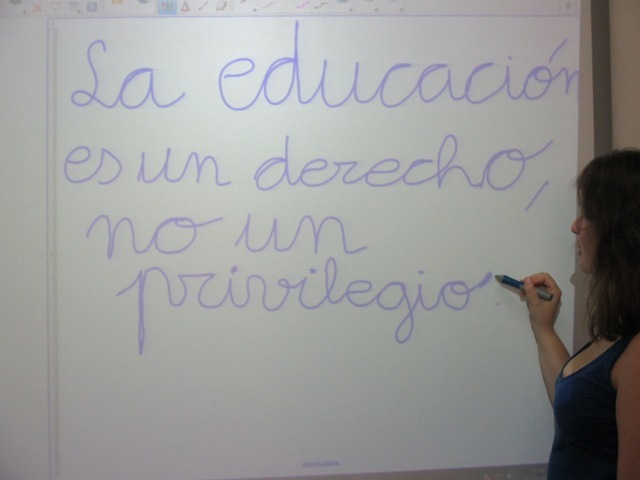 La educación
es un derecho,
no un
privilegio